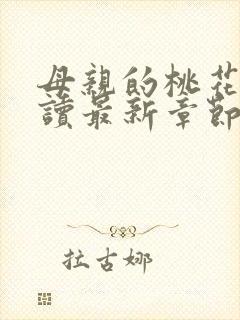 母親的桃花
讀最新章節
拉古娜